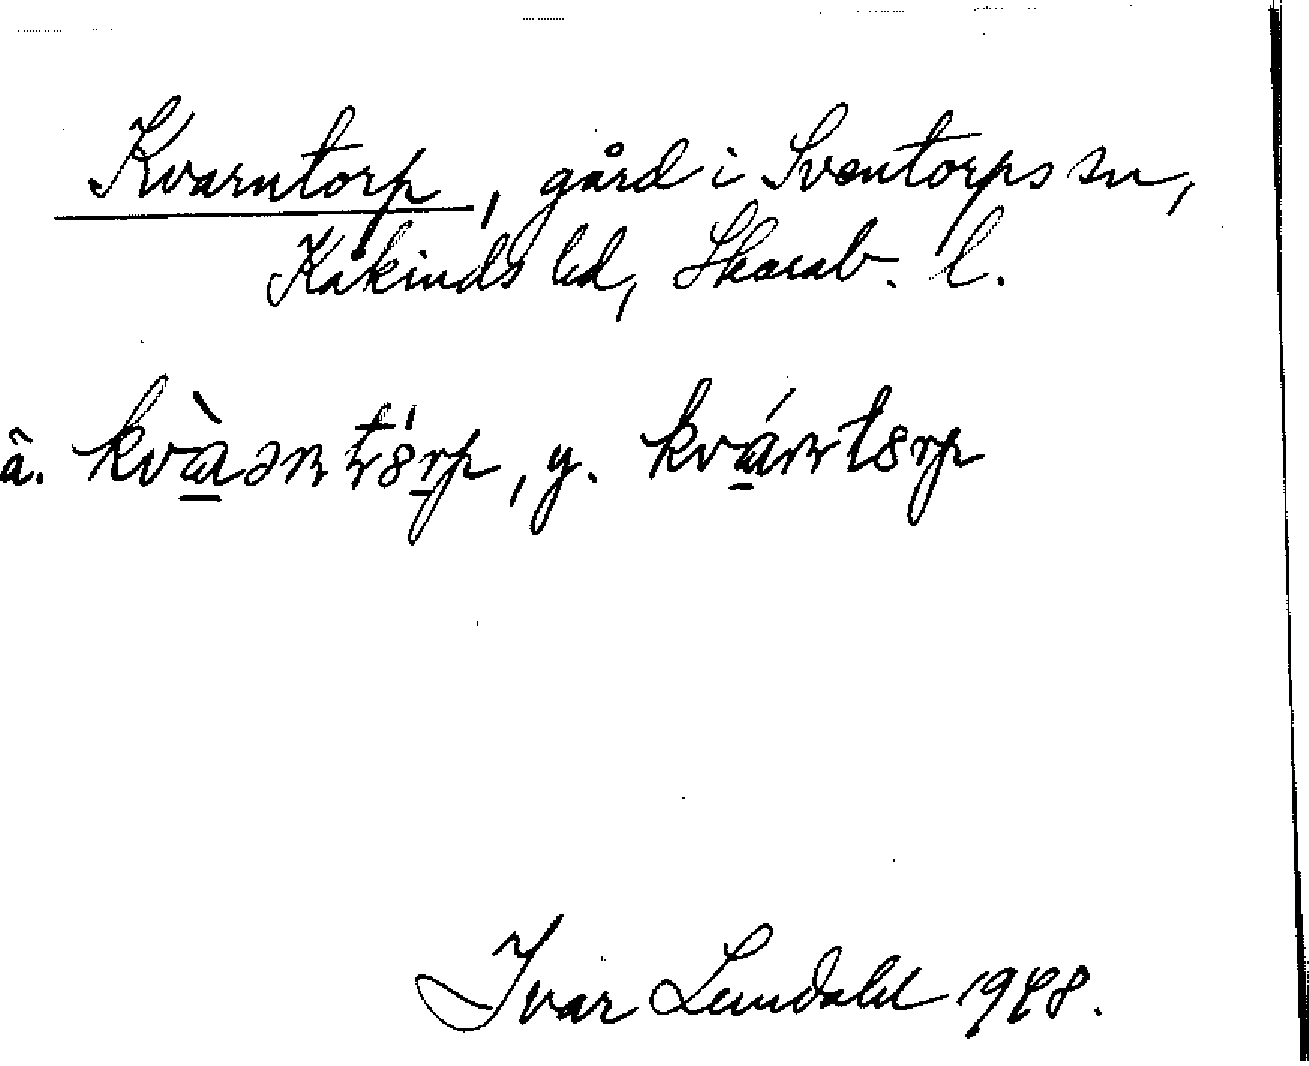 Kvarntorp, gård i Sventorps sn,
Kåkinds hd, Skarab. l.
ä. kvàənt́8rp, y. kvárnt8rp
Ivar Lundahl 1948.